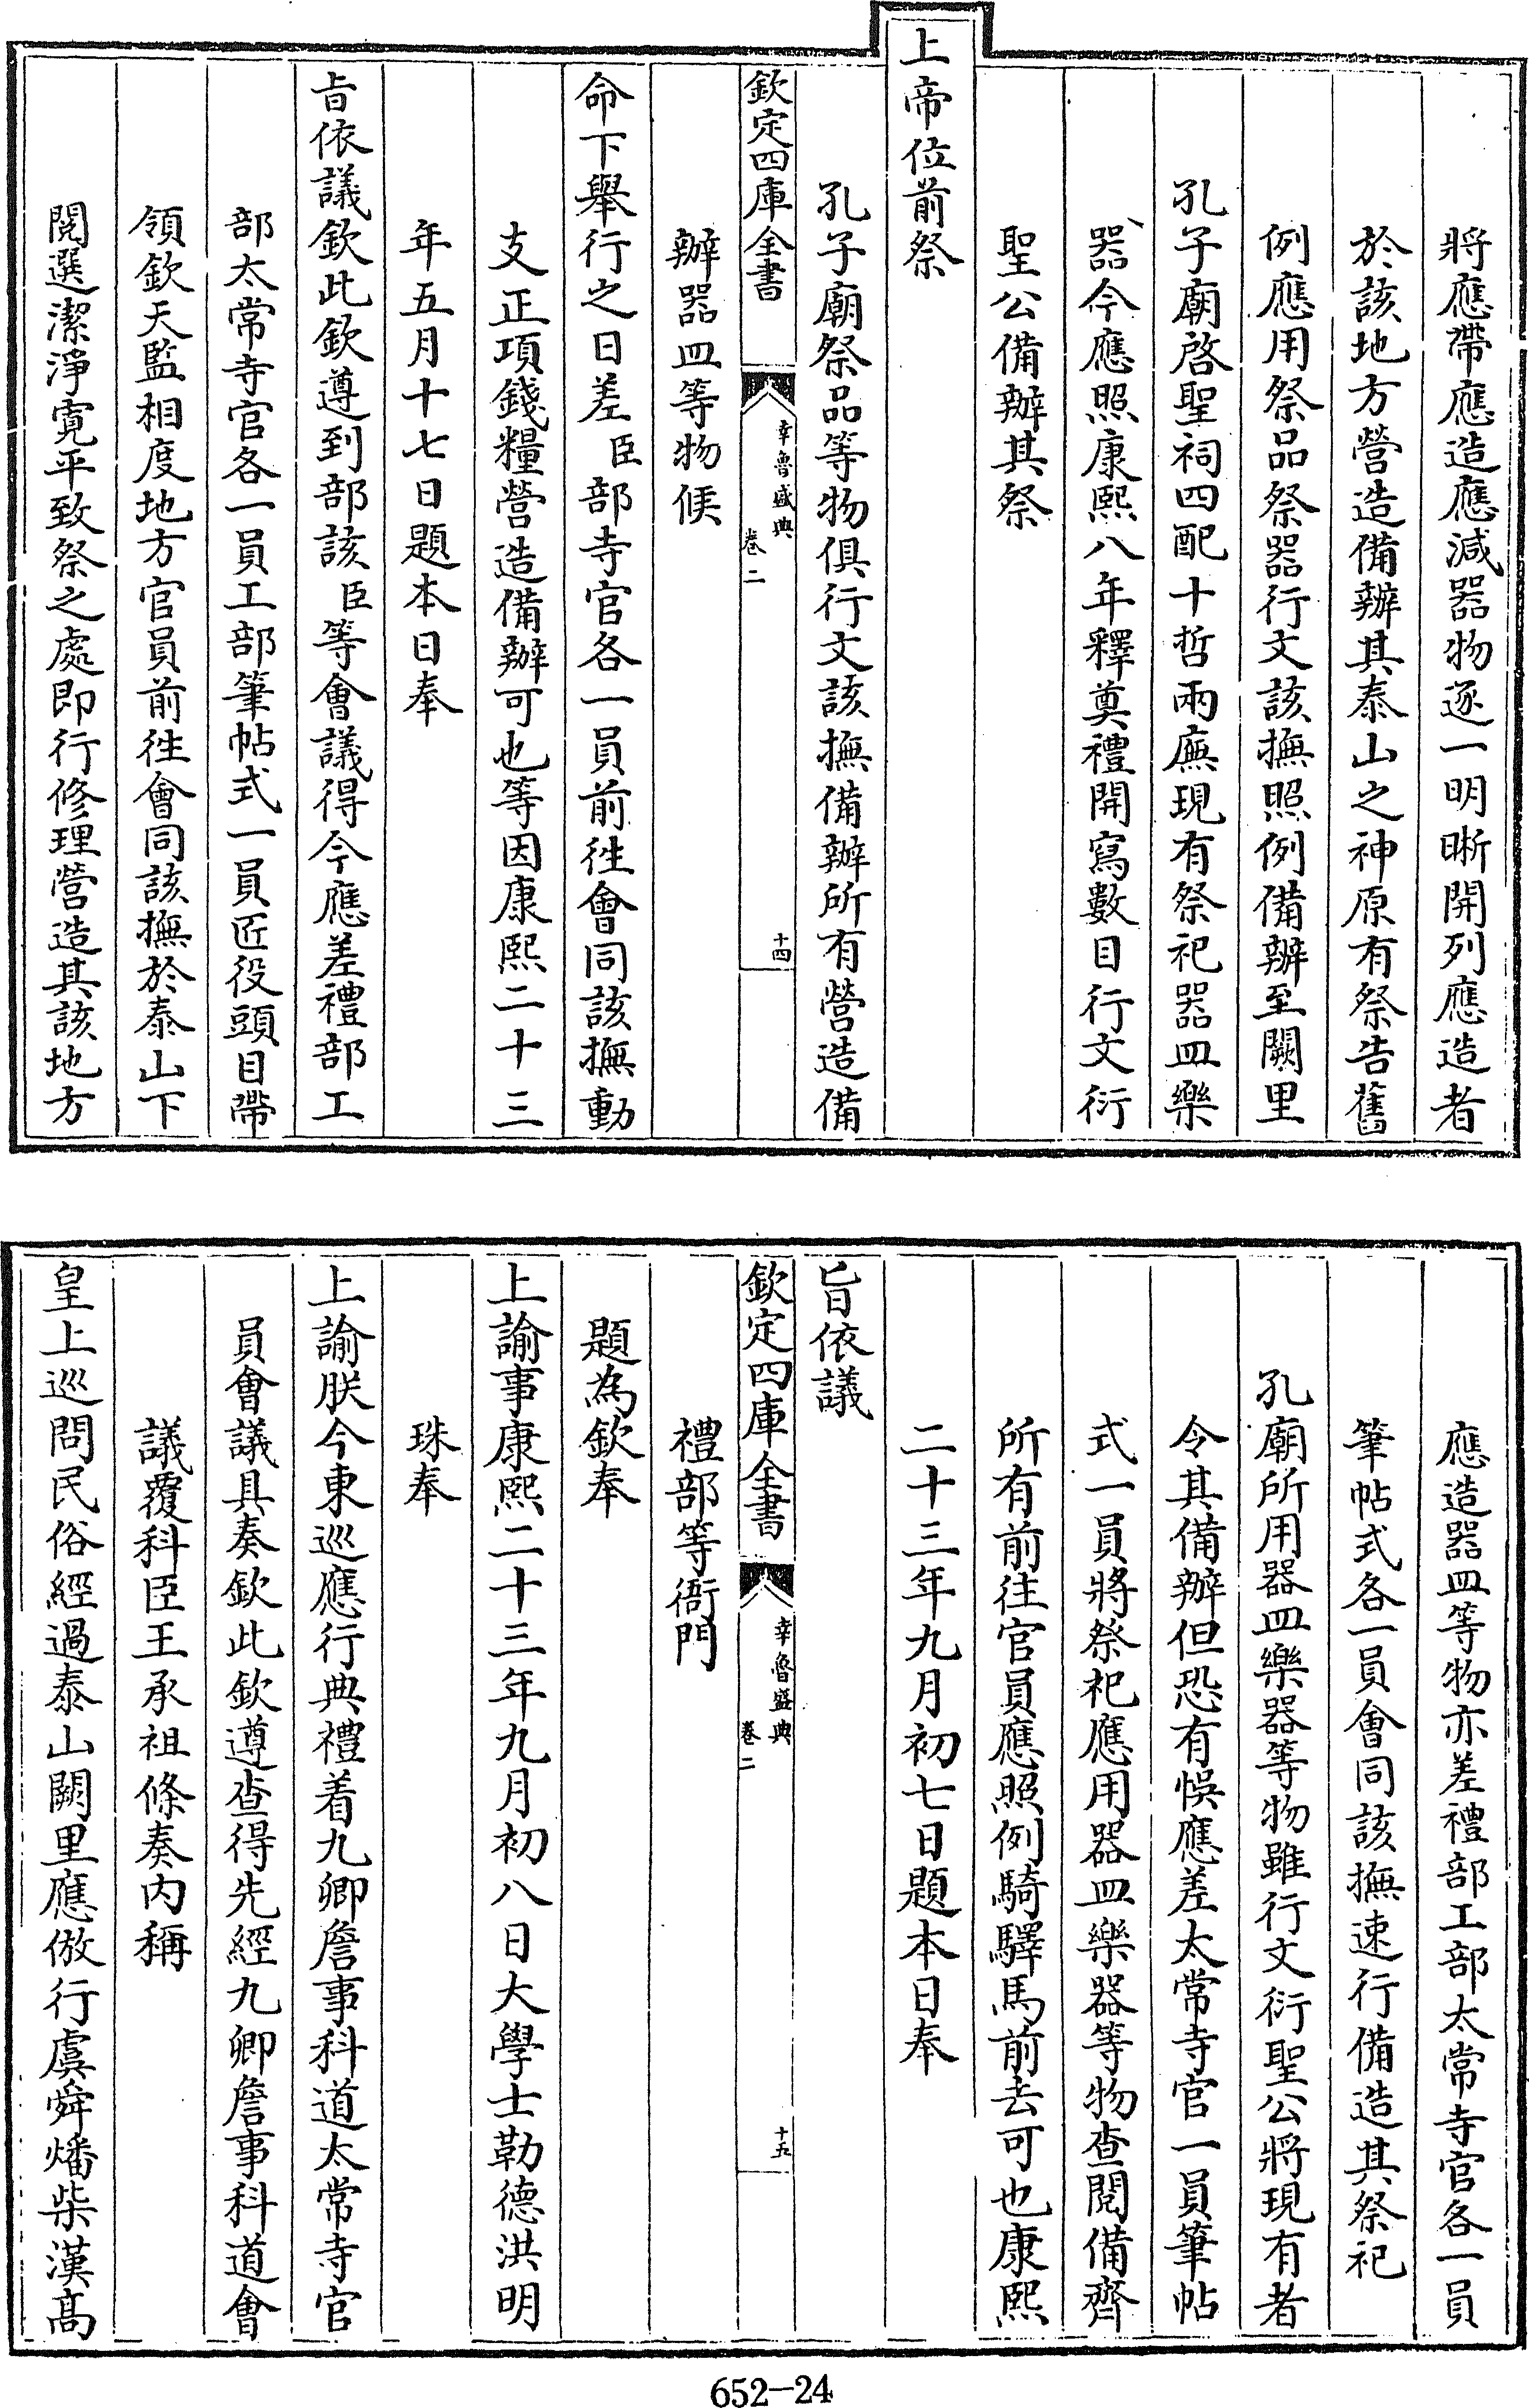 將應帶應造應減器物逐一明晰開列應造者
於該地方營造備辦其泰山之神原有祭告舊
例應用祭品祭器行文該撫照例備辦至闕里
孔子廟啓聖祠四配十哲兩廡現有祭祀器皿樂
器今應照康熙八年釋奠禮開寫數目行文衍
聖公備辦其祭
上帝位前祭
孔子廟祭品等物俱行文該撫備辦所有營造備
欽定四庫全書
幸魯盛典
卷二
十四
辦器皿等物候
命下舉行之日差臣部寺官各一員前徃會同該撫動
支正項錢糧營造備辦可也等因康熙二十三
年五月十七日題本日奉
旨依議欽此欽遵到部該臣等會議得今應差禮部工
部太常寺官各一員工部筆帖式一員匠役頭目帶
領欽天監相度地方官員前徃會同該撫於泰山下
閱選潔淨寬平致祭之處即行修理營造其該地方
應造器皿等物亦差禮部工部太常寺官各一員
筆帖式各一員會同該撫速行備造其祭祀
孔廟所用器皿樂器等物雖行文衍聖公將現有者
令其備辦但恐有悞應差太常寺官一員筆帖
式一員將祭祀應用器皿樂器等物查閱備齊
所有前往官員應照例騎驛馬前去可也康熙
二十三年九月初七日題本日奉
旨依議
欽定四庫全書
幸魯盛典
卷二
十五
禮部等衙門
題為欽奉
上諭事康熙二十三年九月初八日大學士勒德洪明
珠奉
上諭朕今東巡應行典禮着九卿詹事科道太常寺官
員會議具奏欽此欽遵查得先經九卿詹事科道會
議覆科臣王承祖條奏內稱
皇上巡問民俗經過泰山闕里應倣行虞舜燔柴漢高
652-24